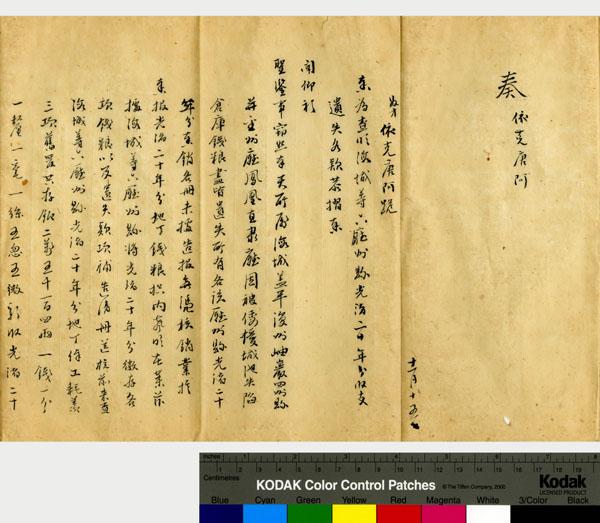 奏
依克唐阿
十一月十五日
奴才依克唐阿跪
奏為查明海城等六廳州縣光緒二十年分收支
遺失各款恭摺奏
聞仰祈
聖鑒事竊照奉天所屬海城蓋平復州岫巖四州縣
並金州廳鳳凰直隸廳因被倭擾城池失陷
倉庫錢粮盡皆遺失所有各該廳州縣光緒二十
年分查銷各冊未據造報無憑核銷業於
奏報光緒二十年分地丁錢粮摺內聲明在案茲
據海城等六廳州縣將光緒二十年分徵存各
項錢粮以及遺失款項補造清冊送核前來查
海城等六廳州縣光緒二十年分地丁俸工耗羨
三項舊管共存銀二萬五千一百四兩一錢一分
一釐一毫一絲五忽五微新收光緒二十
Inches
Centimetres
KODAK Color Control Patches
© The Tiffen Company, 2000
Kodak
LICENSED PRODUCT
Blue Cyan Green Yellow Red Magenta White 3/Color Black